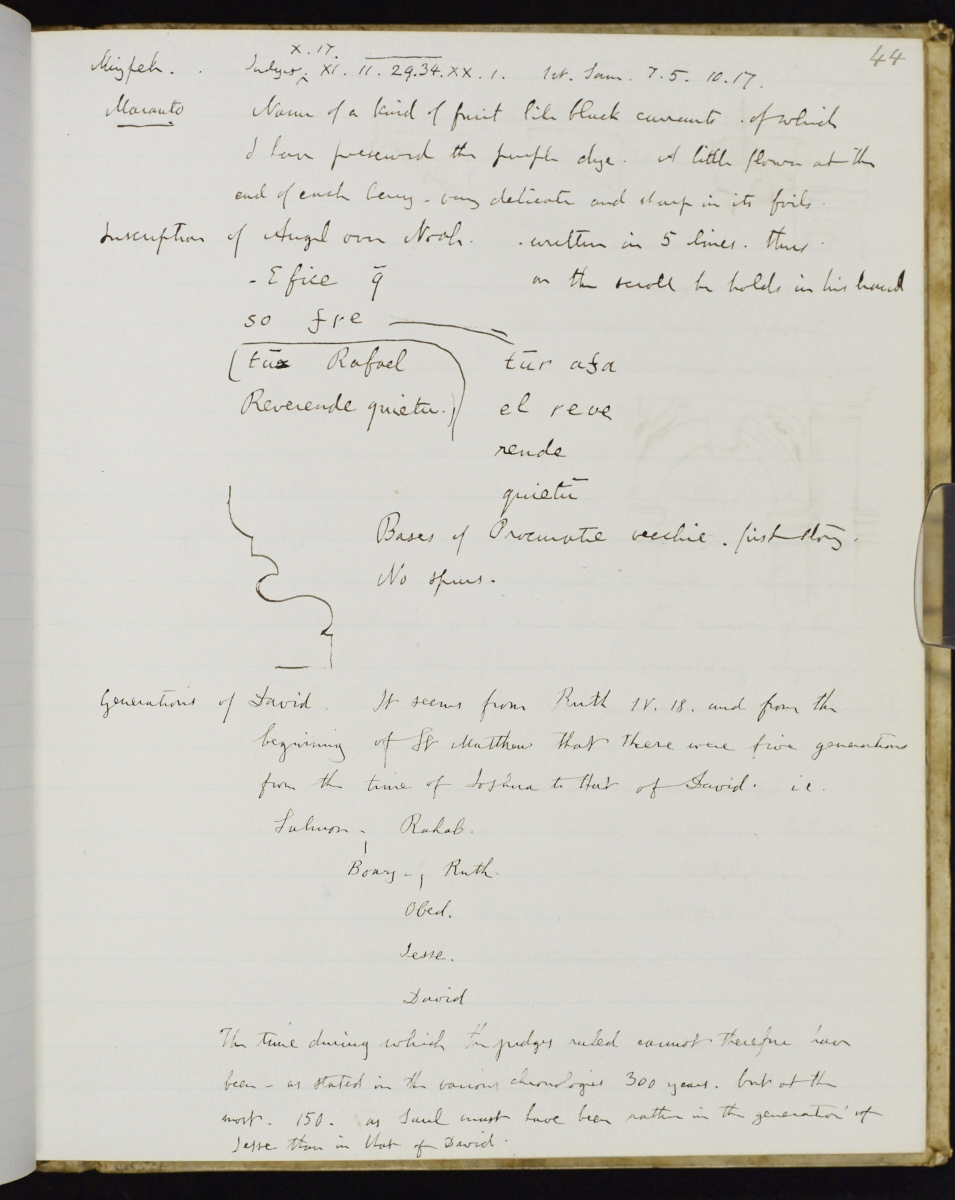 44
X. 17.
Mizpeh. . Judges ^ XI. 11. 29.34. XX. 1. 1st. Sam. 7.5. 10.17.
Maranto Name of a kind of fruit like black currants . of which
I have preserved the purple dye. A little flower at the
end of each berry - very delicate and sharp in its foils.
Inscription of Angel over Noah. . written in 5 lines. thus.
- Efice q̄ on the scroll he holds in his hand
so fre
(tūr Rafael tūr afa
Reverende quietu.) el reve
rende
quietū
Bases of Procuratie vecchie . first story.
No spurs.
Generations of David. It seems from Ruth IV. 18. and from the
beginning of St Matthew that there were five generations
from the time of Joshua to that of David. i.e.
Salmon - Rahab.
Boaz - Ruth.
Obed.
Jesse.
David
The time during which the judges ruled cannot therefore have
been - as stated in the various chronologies 300 years. but at the
most. 150. as Saul must have been rather in the generation of
Jesse than in that of David.